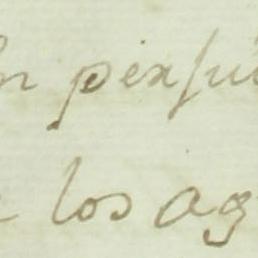 in perjui
los ag